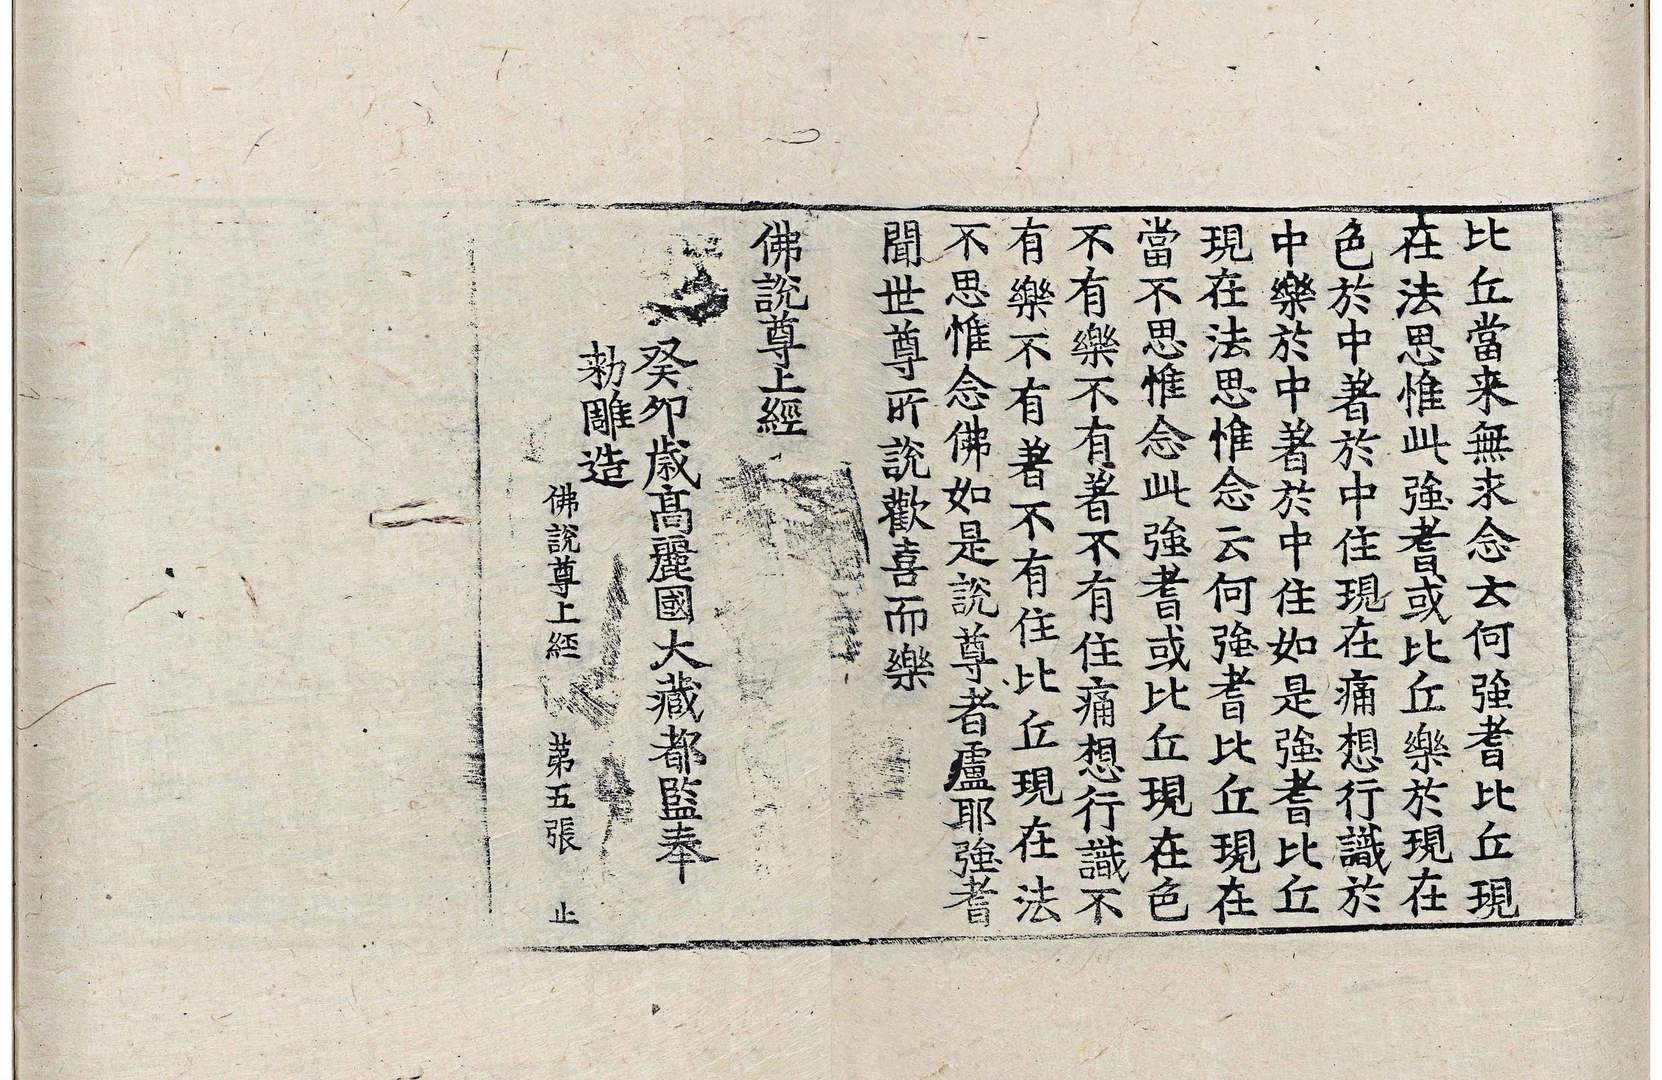 比丘當来無求念云何強耆比丘現
在法思惟此強耆或比丘樂於現在
色於中著於中住現在痛想行識於
中樂於中著於中住如是強耆比丘
現在法思惟念云何強耆比丘現在
當不思惟念此強耆或比丘現在色
不有樂不有著不有住痛想行識不
有樂不有著不有住比丘現在法
不思惟念佛如是說尊者盧耶強耆
聞世尊所說歡喜而樂
佛說尊上經
癸卯歲高麗國大藏都監奉
勑雕造
佛說尊上経 第五張 止